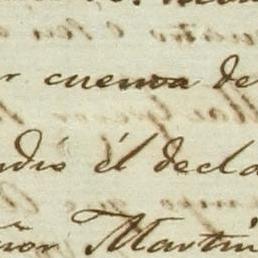 r cuenva de
ndió él decla
ñor Martin